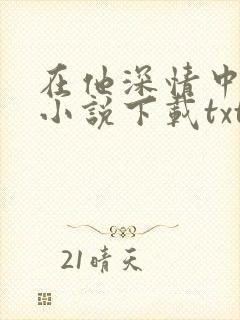 在他深情中
小说下载txt
21晴天